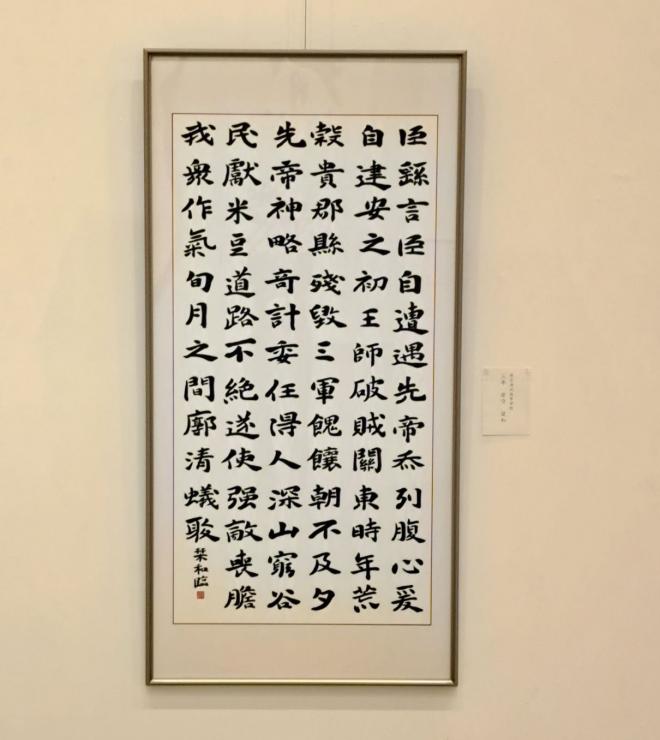 臣繇言臣自遭遇先帝忝列腹心爰
自建安之初王師破賊關東時年荒
穀貴郡縣殘毀三軍餽饟朝不及夕
先帝神略奇計委任得人深山窮谷
民獻米豆道路不絕遂使强敵喪膽
我衆作氣旬月之間廓清蟻聚
臨